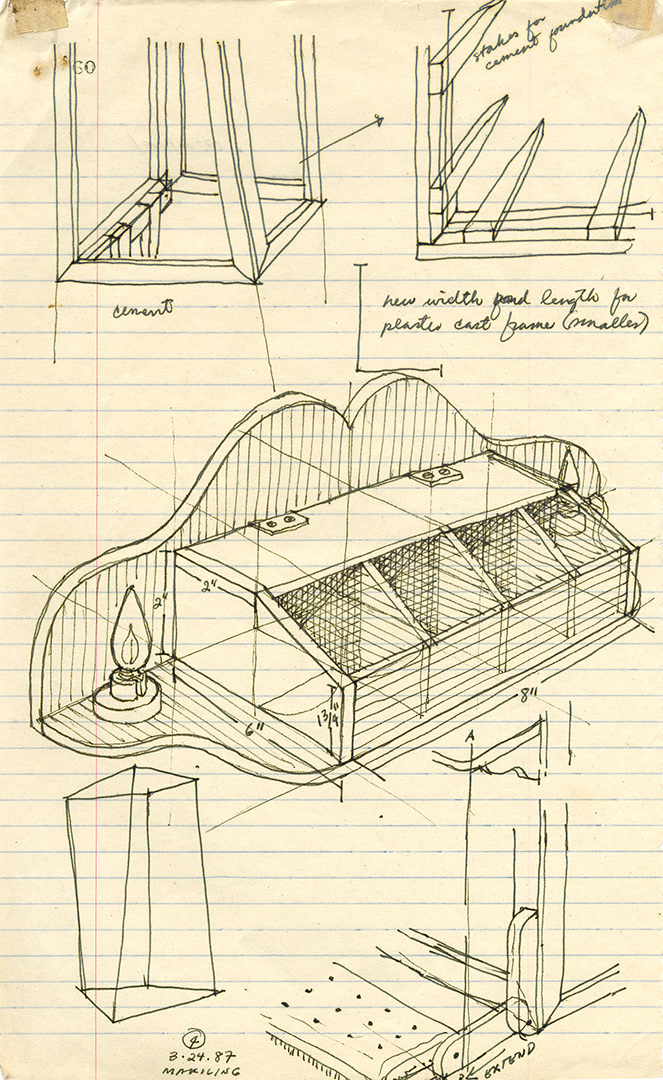 GO
stakes for
cement foundation
cement
new width and length for
plaster cast frame (smaller)
2"
2"
6"
1 3/4"
8"
A
EXTEND
4
3.24.87
MAKILING